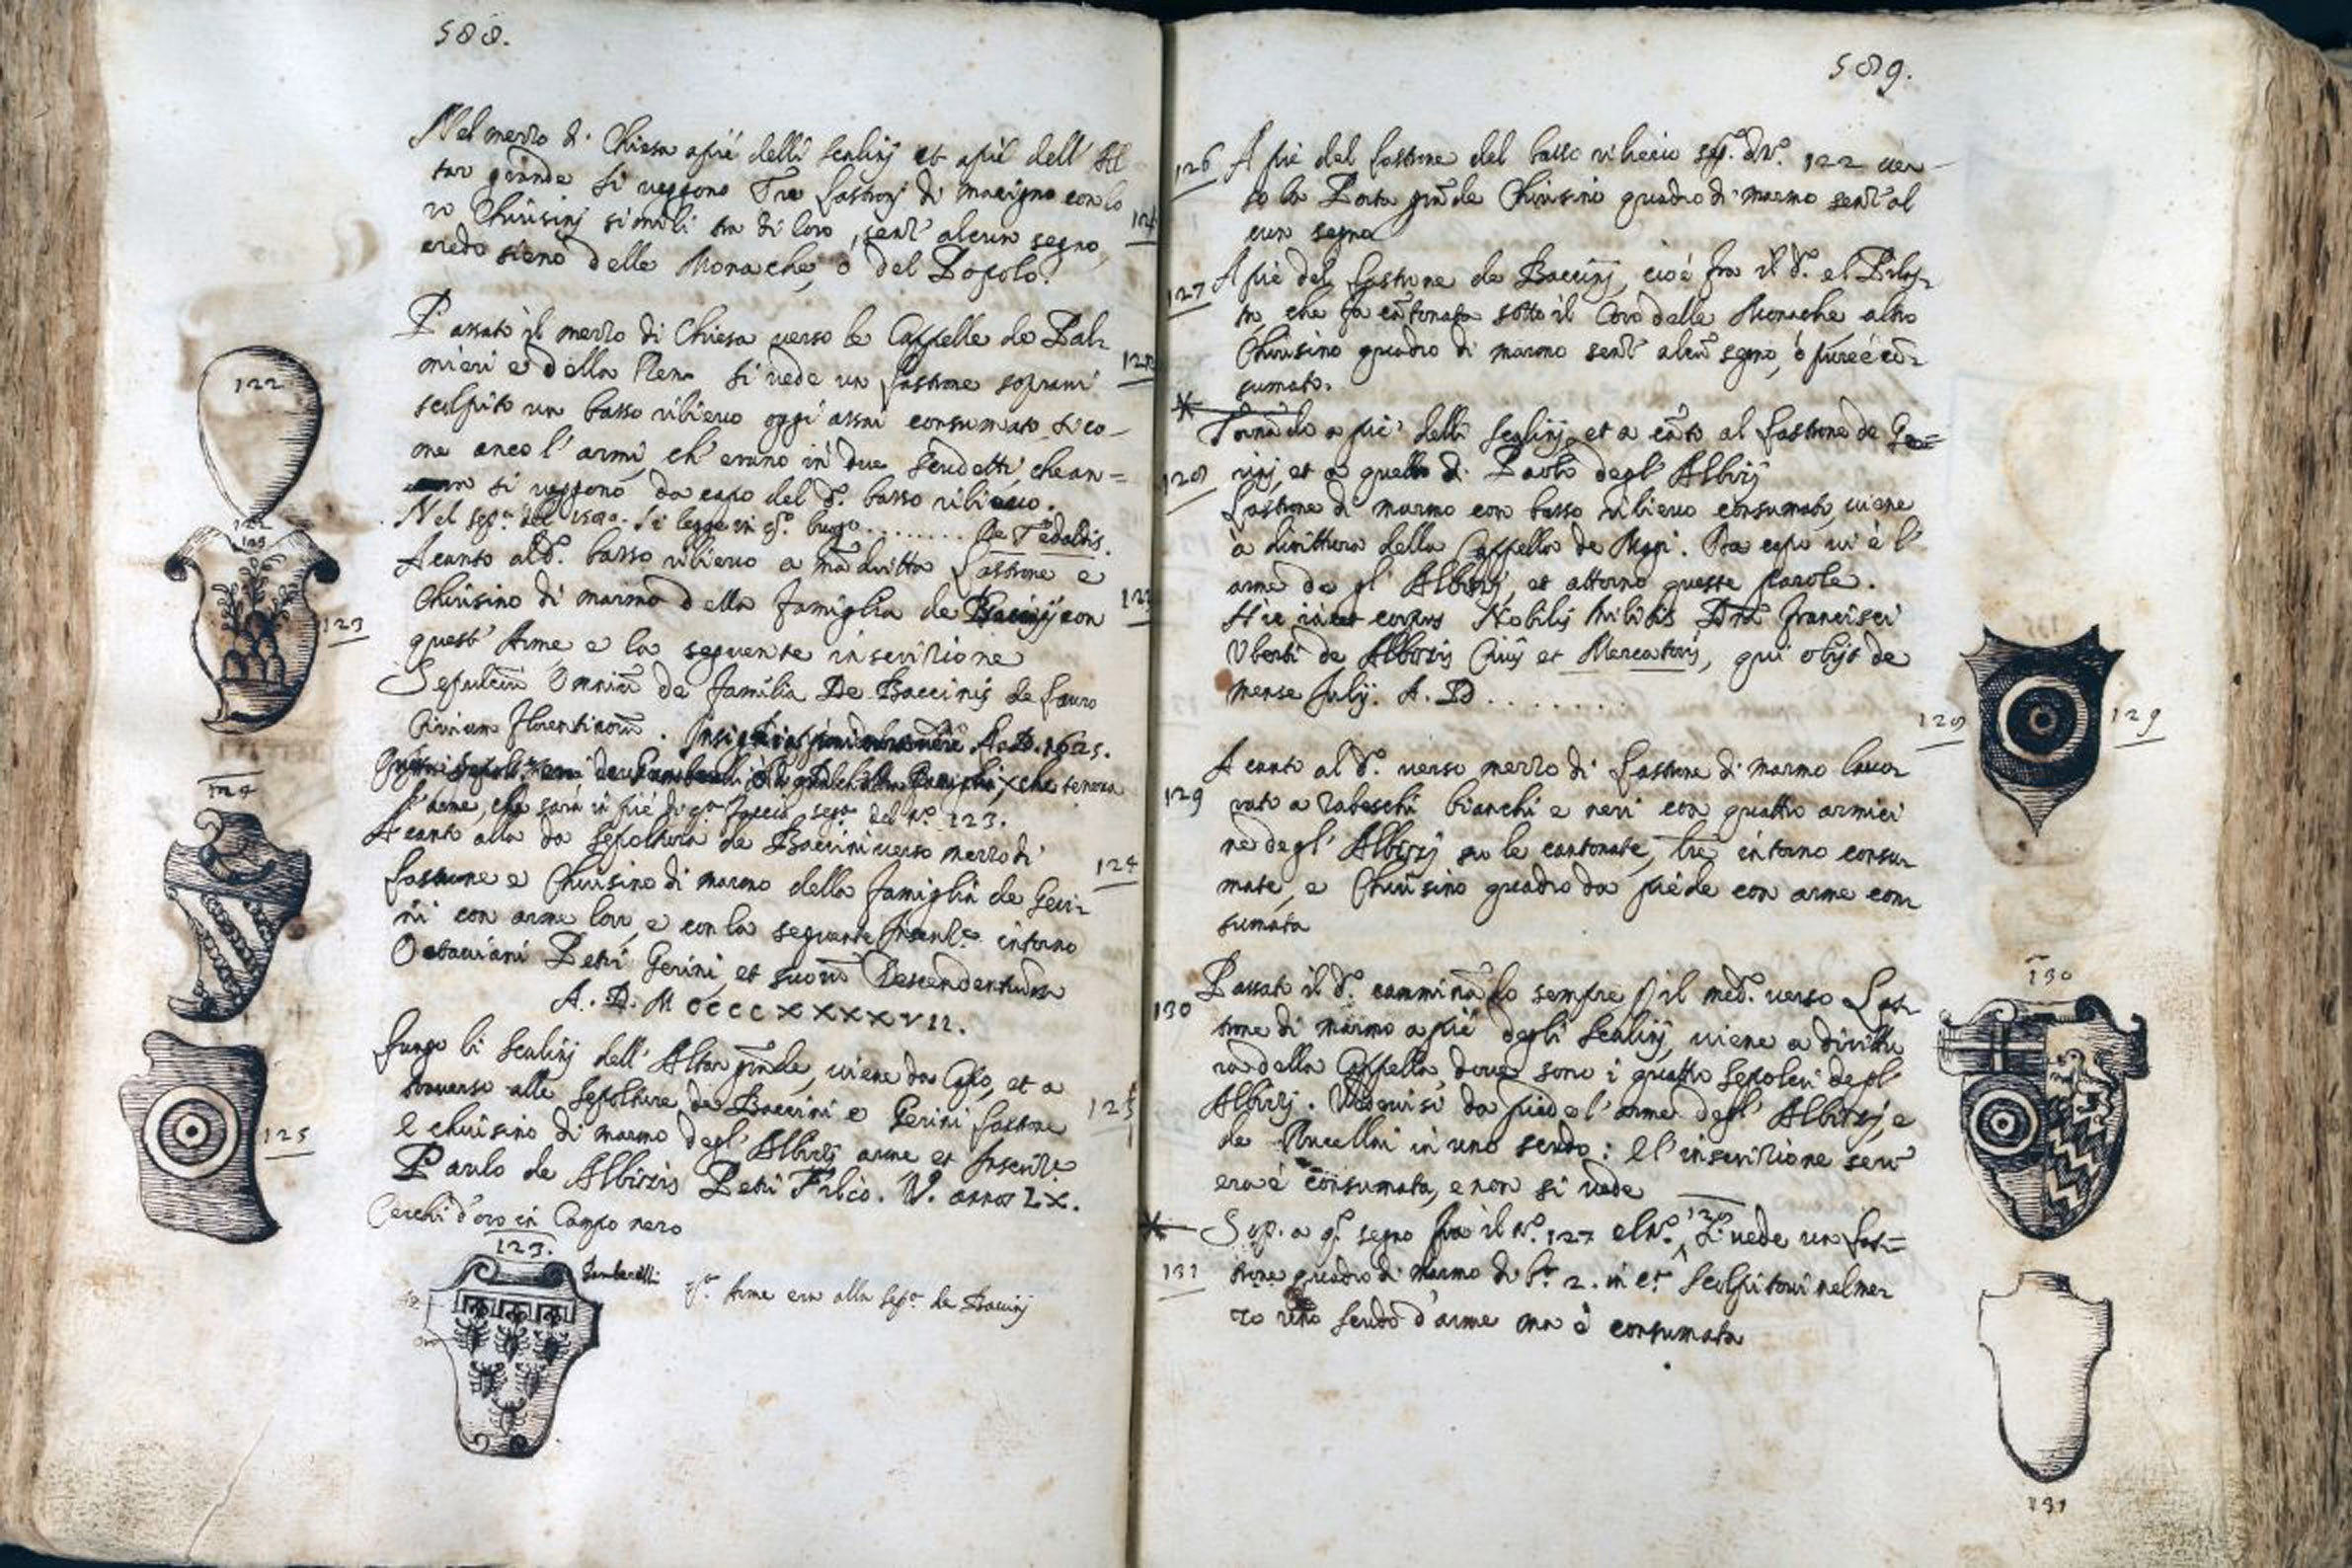 588.
Nel mezzo di Chiesa a piè delli scalinj et a piè dell' Al
tar grande si veggono Tre Lastronj di macigno con lo
ro Chiusinj simili tra di loro, senz' alcun segno,
credo sieno delle Monache, ò del Popolo.
Passato il mezzo di Chiesa verso le Cappelle de Pal-
mieri e della Rena si vede un Lastrone sopravi
scolpito un basso rilievo oggi assai consumato sico-
me anco l'armi, ch' erano in due scudetti, che an=
si veggono da capo del d.o basso rilievo.
Nel sep.a del si legge in q.o luogo ........ De Tedaldis.
Acanto al d.o basso rilievo a mā dritta Lastrone e
Chiusino di marmo della famiglia de Baccinij con
quest' Arme e la seguente inscrizione
Sepulcrū Omniū de familia De Baccinis de Lauro
Civium florentinorū. A. D. 1625.
che teneva
l'arme, che sarà in piè di q.a faccia, seg.a del N.o 123.
Acanto alla da sepoltura de Baccini verso mezzo di
Lastrone e Chiusino di marmo della famiglia de Geri-
ni con arme loro, e con la seguente Inscriz.e intorno
Octaviani Petri Gerini, et suorū Descendentium
A. D. M CCCC XXXXVII.
Lungo li scalinj dell' Altar grāde, viene da Capo, et a
traverso alle sepolture de Baccini e Gerini Lastrone
e chiusino di marmo degl' Albizi arme et Inscriz.e
Paulo de Albizis Petri Filio. V. annos LX.
Cerchi d'oro in Campo nero
123.
Gambarelli
q.a Arme era alla sep.a de Baccinj
122
122
123
123
124
125
124
125
589.
126 A piè del Lastrone del basso rilievo seg. di N.o 122 ver-
so la Porta grāde Chiusino quadro di marmo senz' al
cun segno
127 A piè del Lastrone de Baccinj, cioè fra il d.o e l Pilas-
tro, che fa cātonata sotto il Coro delle Monache altro
Chiusino quadro di marmo senz' alcū segno, ò pure è cō-
sumato.
Tornādo a piè delli scalinj et a cāto al Lastrone de Ge=
128 rinj, et a quello di Paolo degl' Albizj
Lastrone di marmo con basso rilievo consumato, viene
a dirittura della Cappella de Nasi. Da capo vi è l'
arme de gl' Albizzj, et attorno queste parole.
Hic iacet corpus Nobilis Militis Dnī Francisci
Uberti de Albizis Civis et Mercatoris, qui obijt de
mense Julij. A. D .......
128
129
129 Acanto al d.o verso mezzo di Lastrone di marmo lavo-
rato a rabeschi bianchi e neri con quattro armici
ne degl' Albizzj su le cantonate, tre intorno consu-
mate, e Chiusino quadro da piede con arme con-
sumata
130 Passato il d.o camminādo sempre p il med.o verso Las-
trone di marmo a piè degli scalinj, viene a dirittu
ra della Cappella, dove sono i quattro sepolcri degl'
Albizzj. Vedevisi da piede l'arme degl' Albizzj, e
de Rucellai in uno scudo: e l'inscrizione serv
era è cōsumata, e non si vede
130
Sop. a q.o segno fra il N.o 127 e l N.o 128 si vede un Las=
131 trone quadro di marmo di b.a 2. in c.a scolpitovi nel mez
zo uno scudo d'arme ma è consumata
131